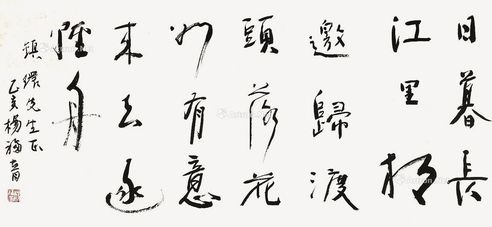 日暮長
江里相
邀歸渡
頭落花
如有意
來去逐
輕舟
先生正
乙亥楊福音